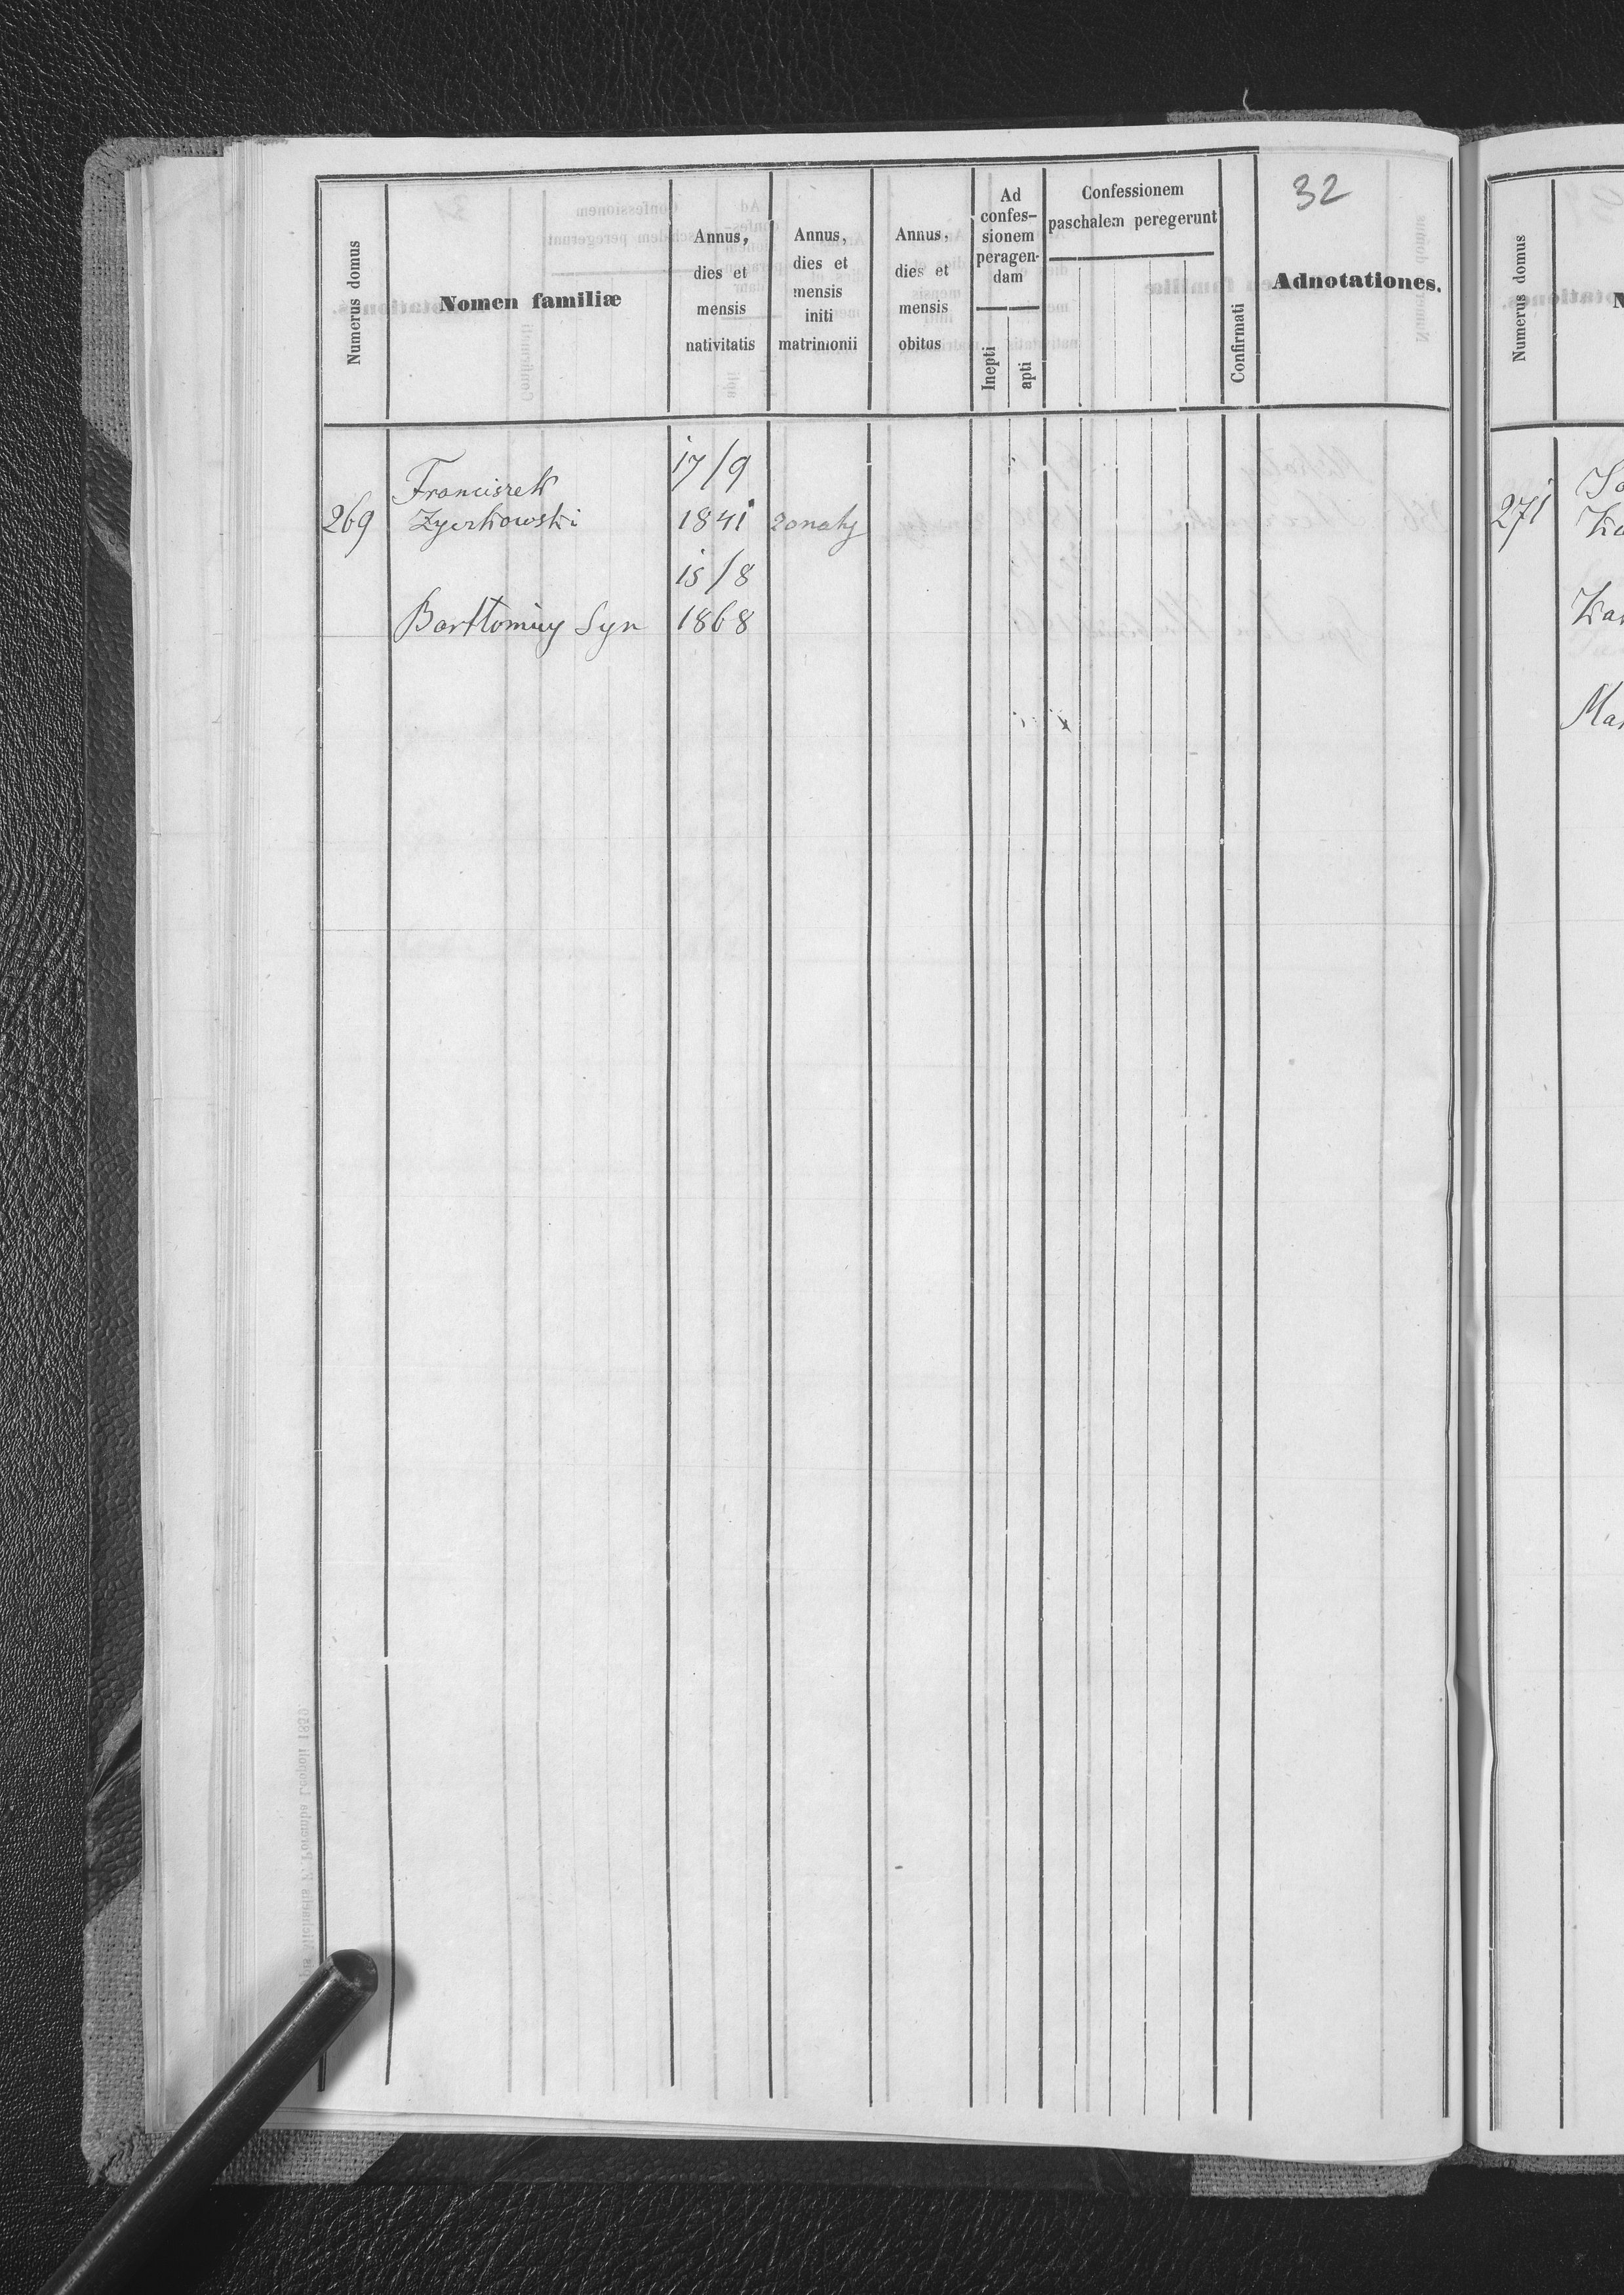 32
Numerus domus
Nomen familiæ
Annus,
dies et
mensis
nativitatis
Annus,
dies et
mensis
initi
matrimonii
Annus,
dies et
mensis
obitus
Ad
confes-
sionem
peragen-
dam
Inepti
apti
Confessionem
paschalem peregerunt
Confirmati
Adnotationes.
Franciszek 17/9
269 Zyerkowski 1841 zonaty
15/8
Bartłomiey Syn 1868
Numerus domus
271